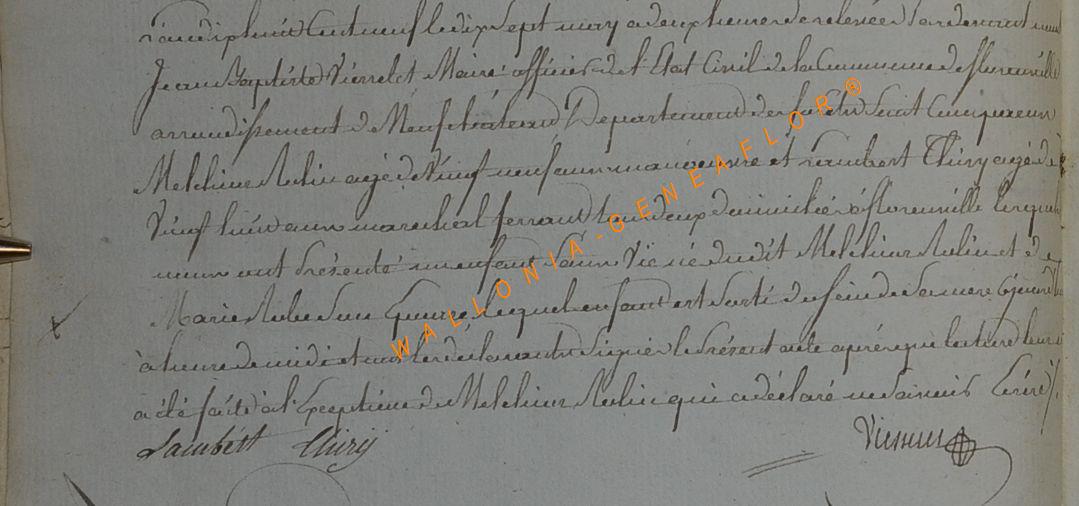 mil huit Cent neuf le dix sept may a deux heures de relevée Pardevant nous
Jean Baptiste Maire officier de l'Etat Civil de la Commune de florenville
arrondissement de Neufchateau Département des forêts Sont Comparus
Melchior agé de Vingt neuf ans manoeuvre et Lambert Thiry agé de
Vingt huit ans marechal ferrant tous deux domiciliés à florenville lesquels
nous ont Présenté un enfant Sans Vie né dudit Melchior et de
Marie Son Epouse, Lequel enfant est Sorti du Sein de Sa mere
à heure de midi et ont les déclarants Signés le Présent acte après que lecture leur
a été faite à l'Exception de Melchior qui a déclaré ne Savoir Ecrire
Lambert Thiry
WALLONIA-GENEAFLOR®